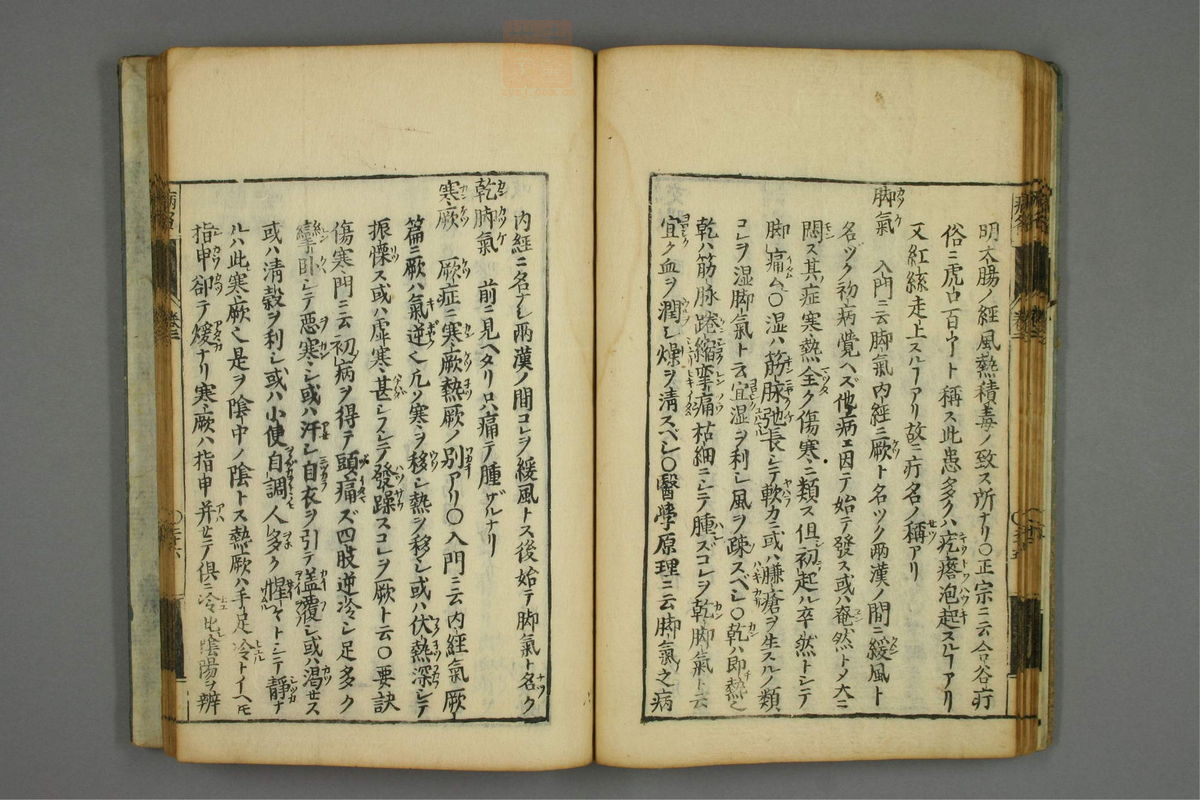 明太腸ノ經風熱積毒ノ致ス所ナリ〇正宗ニ云合谷疔
俗ニ虎口百丫ト稱ス此患多クハ疙瘩泡起スルヿアリ
又紅絲走上スルヿアリ故ニ疔名ノ稱アリ
脚氣 入門ニ云脚氣内經ニ厥ト名ツク兩漢ノ間ニ緩風ト
名ヅク初病覺ヘズ他病ニ因テ始テ發ス或ハ奄然トノ大ニ
悶ス其症寒熱全ク傷寒ニ類ス但初起ル卒然トシテ
脚痛ム〇湿ハ筋脉弛長シテ軟カニ或ハ臁瘡ヲ生スルノ類
コレヲ湿脚氣ト云宜湿ヲ利シ風ヲ疎スベシ〇乾ハ即熱也
乾ハ筋脉踡縮攣痛枯細ニシテ腫ズコレヲ乾脚氣ト云
宜ク血ヲ潤シ燥ヲ清スベシ〇醫學原理ニ云脚氣之病
内經ニ名ナシ兩漢ノ間コレヲ緩風トス後始テ脚氣ト名ク
乾脚氣 前ニ見ヘタリ只痛テ腫ザルナリ
寒厥 厥症ニ寒厥熱厥ノ別アリ〇入門ニ云内經氣厥
篇ニ厥ハ氣逆也凡ソ寒ヲ移シ熱ヲ移シ或ハ伏熱深シテ
振慄ス或ハ虚寒甚シフシテ發躁スコレヲ厥ト云〇要訣
傷寒門ニ云初病ヲ得テ頭痛ズ四肢逆冷シ足多ク
攣臥シテ惡寒シ或ハ汗シ自衣ヲ引テ盖覆シ或ハ渇セス
或ハ清穀ヲ利シ或ハ小便自調人多ク惺々トシテ静ナ
ルハ此寒厥也是ヲ陰中ノ陰トス熱厥ハ手足冷トイヘモ
指申卻テ煖ナリ寒厥ハ指申并セテ倶ニ冷此陰陽ヲ辨